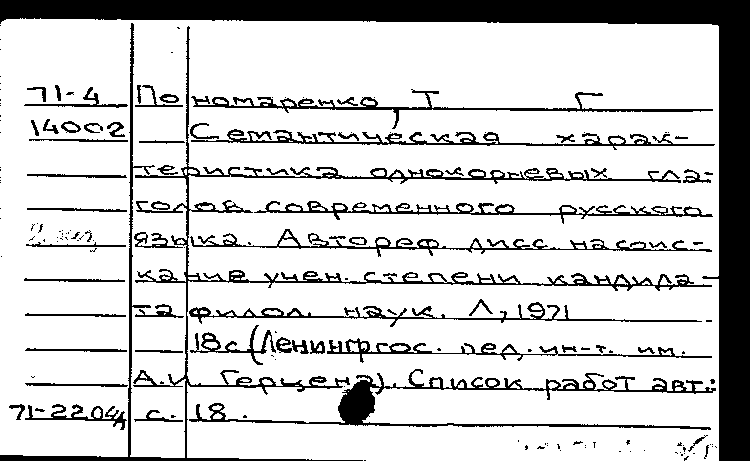 71-4 Пономаренко, Т Г
14002 Семантическая харак-
теристика однокорневых гла-
голов современного русского
языка. Автореф. дисс. на соис-
кание учен. степени кандида-
та филол. наук. Л, 1971
18с (Ленингр гос. пед. ин-т. им.
А.И. Герцена). Список работ авт.:
71-2204А с. 18.